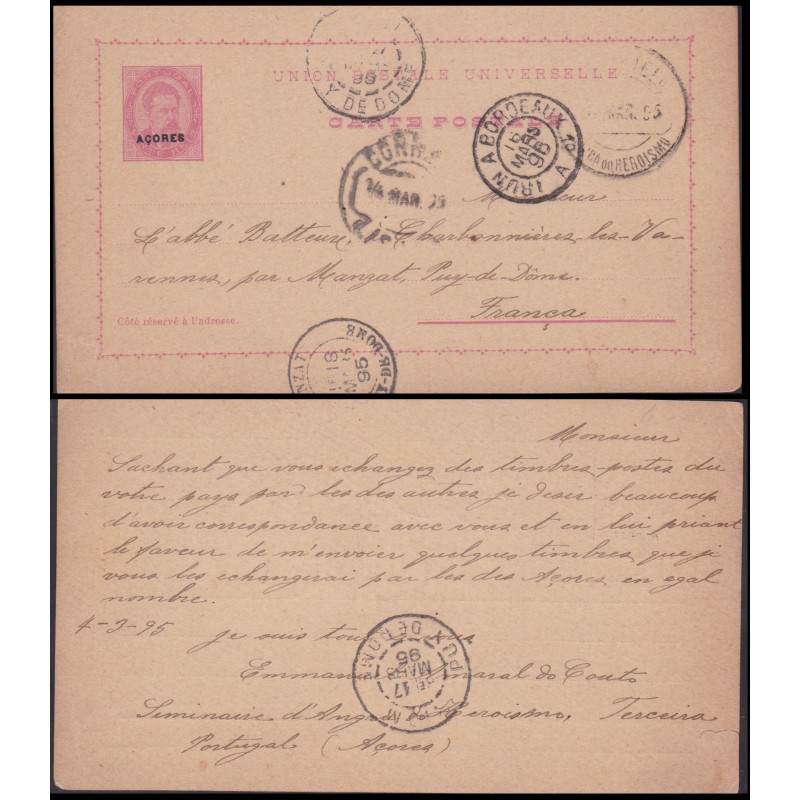 UNION POSTALE UNIVERSELLE
CARTE POSTALE
AÇORES
Y DE DOME
95
IRUN A BORDEAUX
16
MARS
95
MAR. 95
HEROISMO
CORR
14 MAR. 95
Monsieur
L'abbé Batteux, à Charbonnières-les-Va-
rennes, par Manzat, Puy-de-Dôme.
França
Côté réservé à l'adresse.
NZAT
-DE-DOME
18
95
Monsieur
Sachant que vous echangez des timbres-postes du
votre pays par les des autres je desir beaucoup
d'avoir correspondance avec vous et en lui priant
le faveur de m'envoier quelques timbres, que je
vous les echangerai par les des Açores, en egal
nombre.
4-3-95 je suis tout
Emmanuel Amaral do Couto
Seminaire d'Angra Heroismo, Terceira
Portugal (Açores)
17
MARS
95